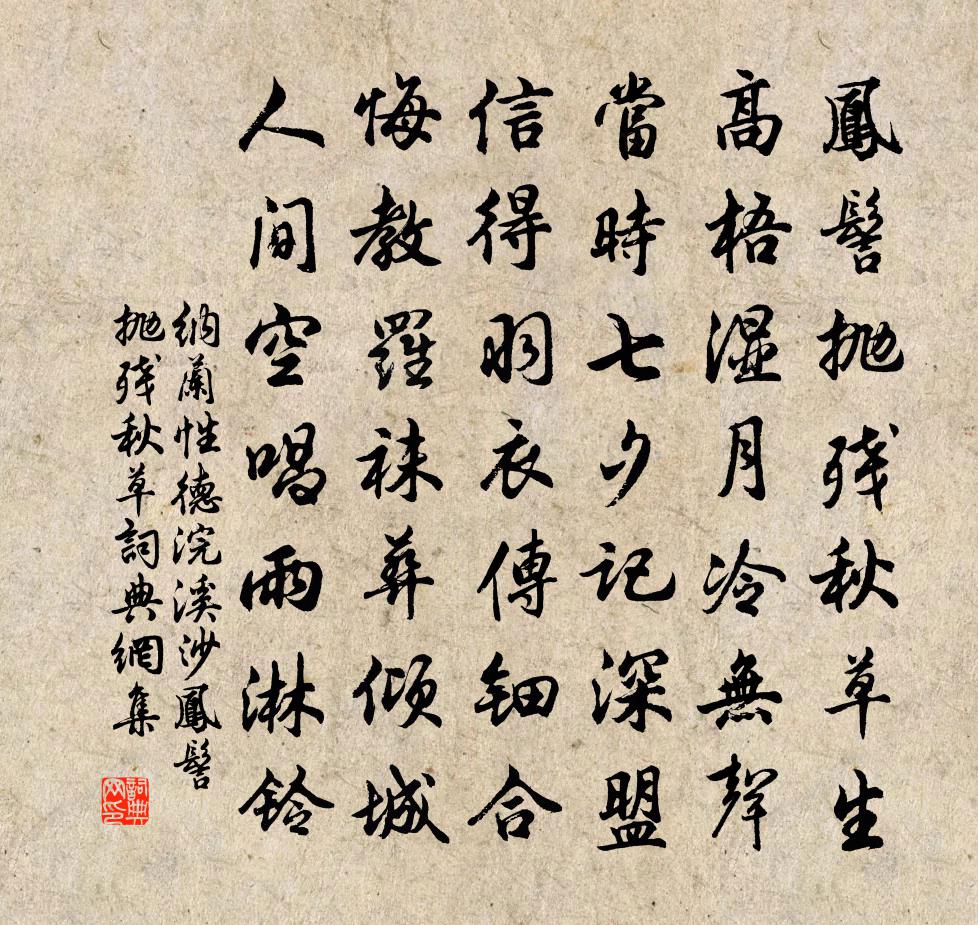 鳳髻抛殘秋草生
高梧濕月冷無聲
當時七夕記深盟
信得羽衣傳鈿合
悔教羅袜葬傾城
人間空唱雨淋鈴
納蘭性德浣溪沙鳳髻
抛殘秋草詞典網集
詞典
网印